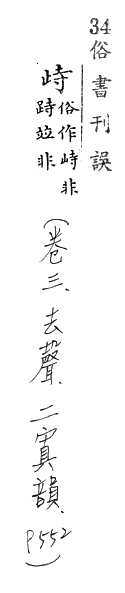 34俗書刊誤
歭
俗作峙非
跱竝非
(卷三、去聲、二寘韻、P552)